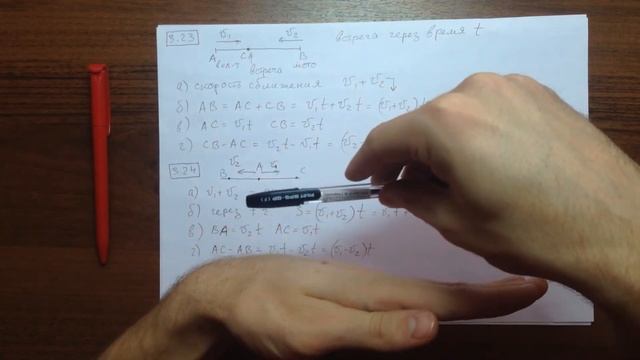 3.23
v₁ v₂ встреча через время t
A CA B
встреча мото
а) скорость сближения v₁+v₂
б) AB = AC + CB = v₁t + v₂t = (v₁+v₂)
в) AC = v₁t CB = v₂t
г) CB - AC = v₂t - v₁t = (v₂
3.24
v₂ A
B C
а) v₁+v₂
б) через S = (v₁+v₂)t = v₁t +
в) BA = v₂t AC = v₁t
г) AC - AB = v₁t - v₂t = (v₁-v₂)t